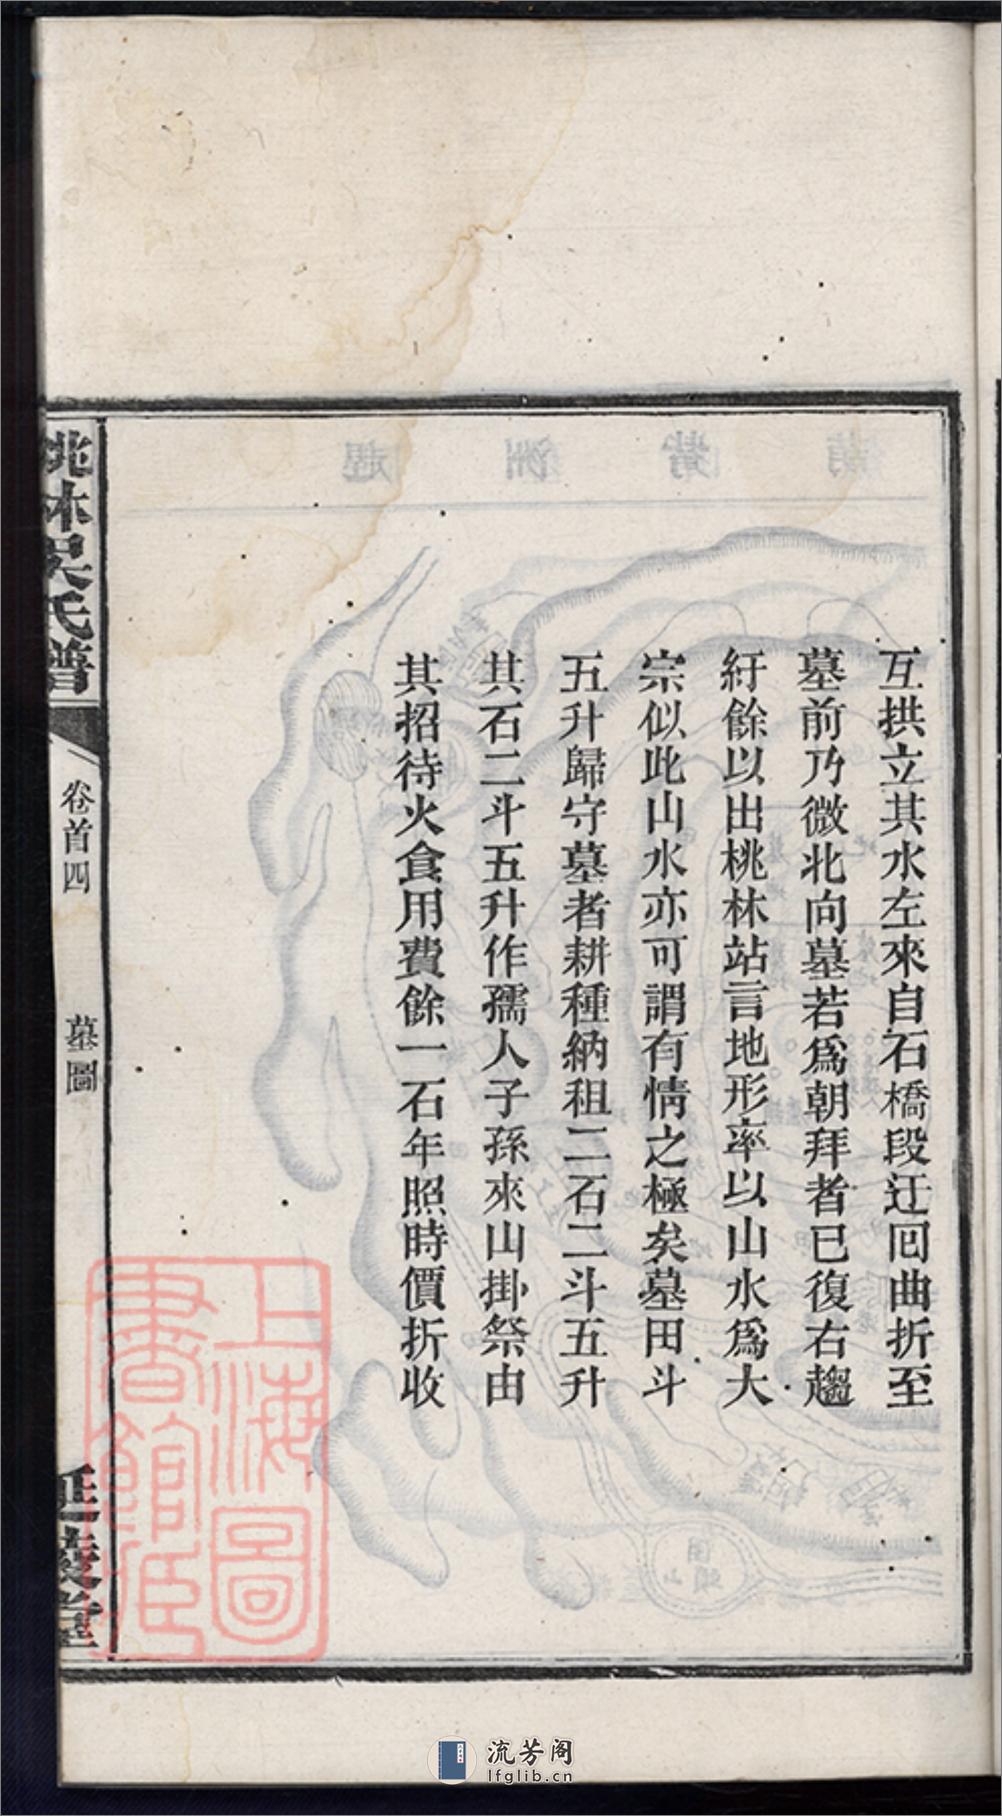 互拱立其水左來自石橋段迂回曲折至
墓前乃微北向墓若爲朝拜者已復右趨
紆餘以出桃林站言地形率以山水爲大
宗似此山水亦可謂有情之極矣墓田斗
五升歸守墓者耕種納租二石二斗五升
其石二斗五升作孺人子孫來山掛祭由
其招待火食用費餘一石年照時價折收
桃林吳氏譜
卷首四
墓圖
延陵堂
上海圖
書館臧
流芳阁
lfglib.cn